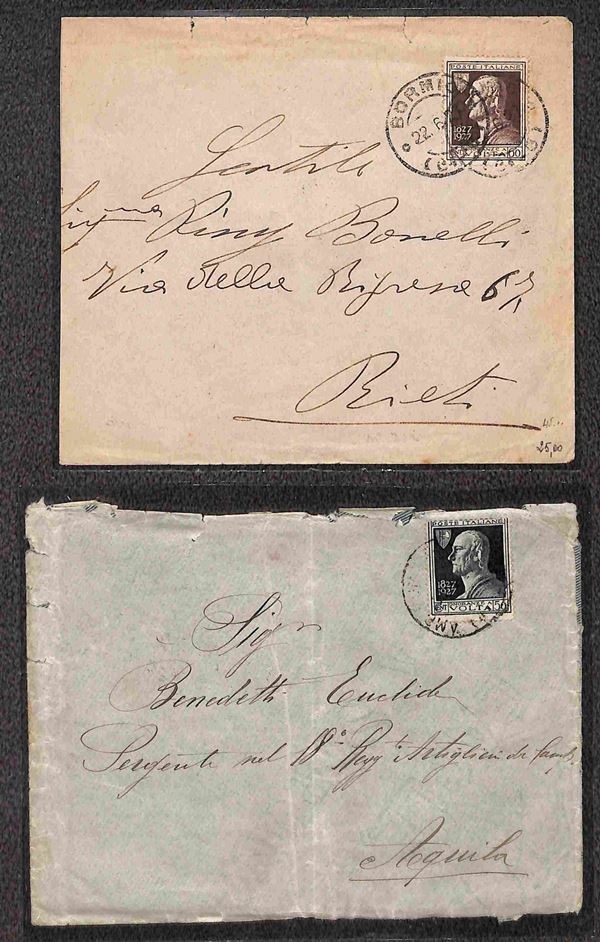 POSTE ITALIANE
BORMI
22.6
1827
1927
VOLTA 60
Gentile
Sig.na Piny Bonelli
Via della Ripresa 67
Rieti
45
25,00
POSTE ITALIANE
1827
1927
VOLTA 50
Sigr
Benedetti Euclide
Sergente nel 18° Regg.to Artiglieria da Camp.
Aquila